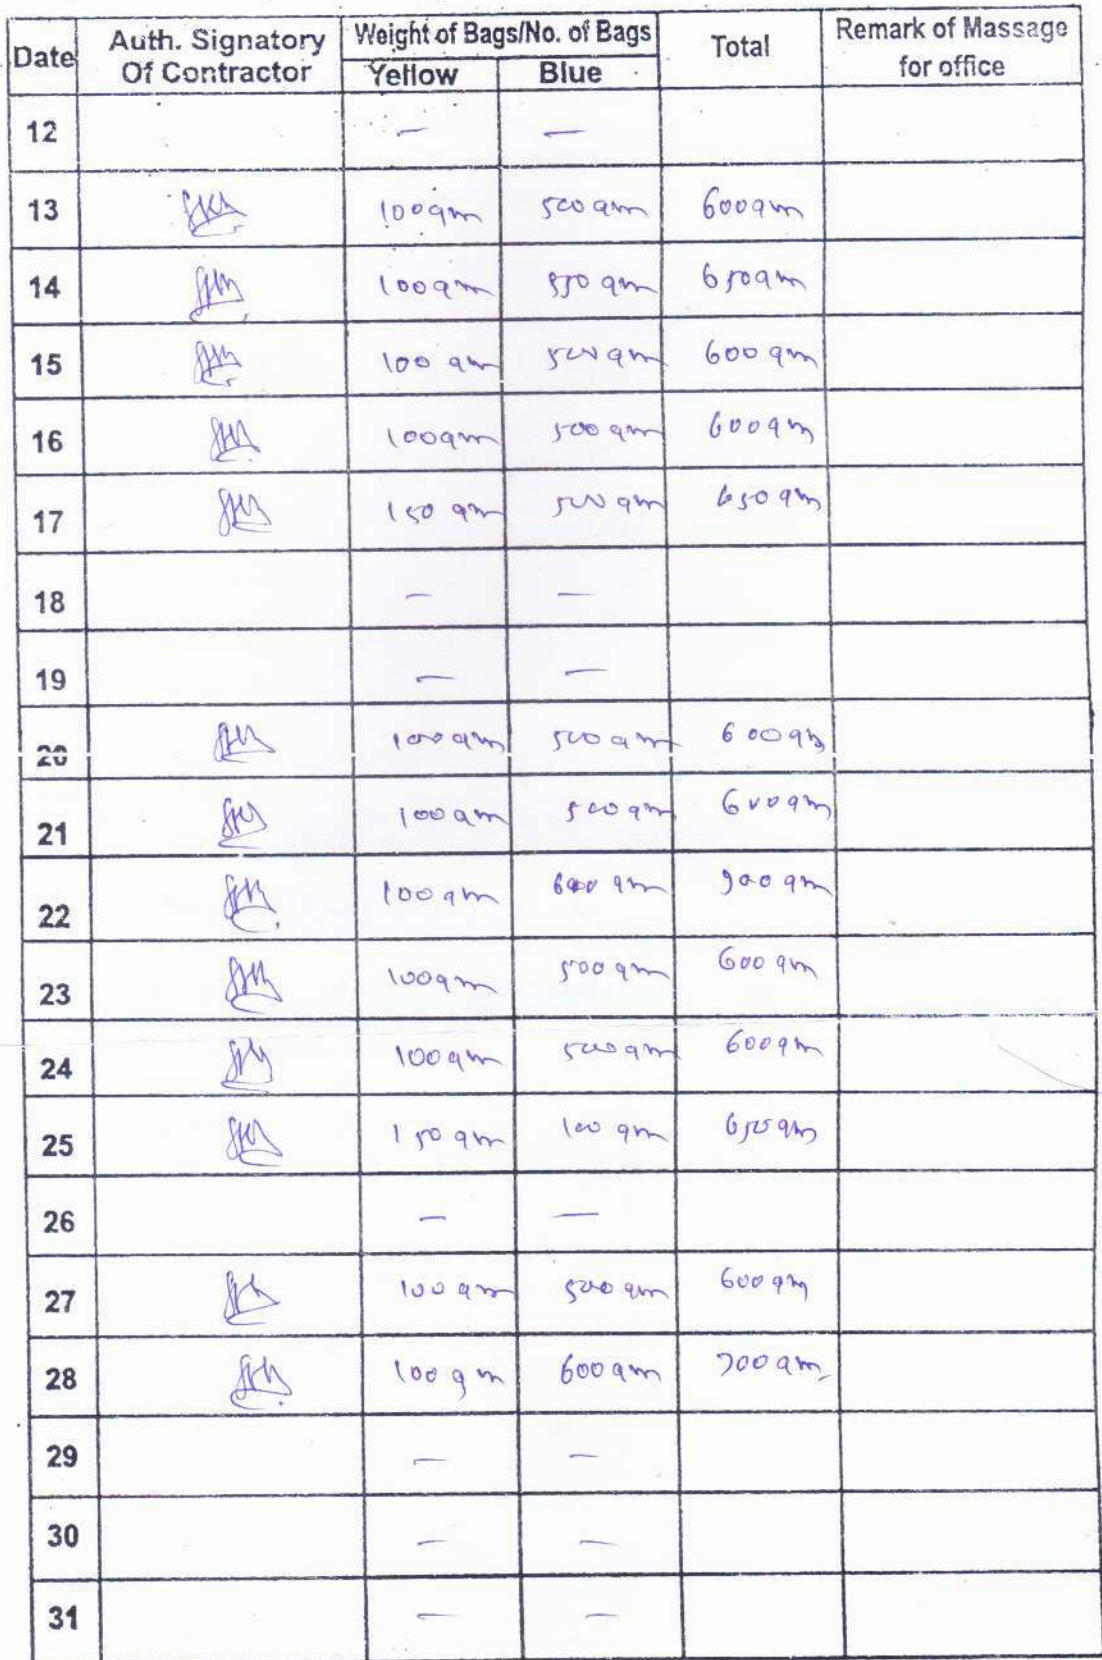 Date Auth. Signatory Of Contractor Weight of Bags/No. of Bags Total Remark of Massage for office
Yellow Blue
12 — —
13 100gm 500gm 600gm
14 100gm 550gm 650gm
15 100 gm 500gm 600gm
16 100gm 500gm 600gm
17 150 gm 500gm 650gm
18 — —
19 — —
20 100gm 500gm 600gm
21 100gm 500gm 600gm
22 100gm 600 gm 700 gm
23 100gm 500gm 600 gm
24 100gm 500gm 600gm
25 150 gm 100 gm 650gm
26 — —
27 100 gm 500 gm 600 gm
28 100 gm 600gm 700 gm
29 — —
30 — —
31 — —